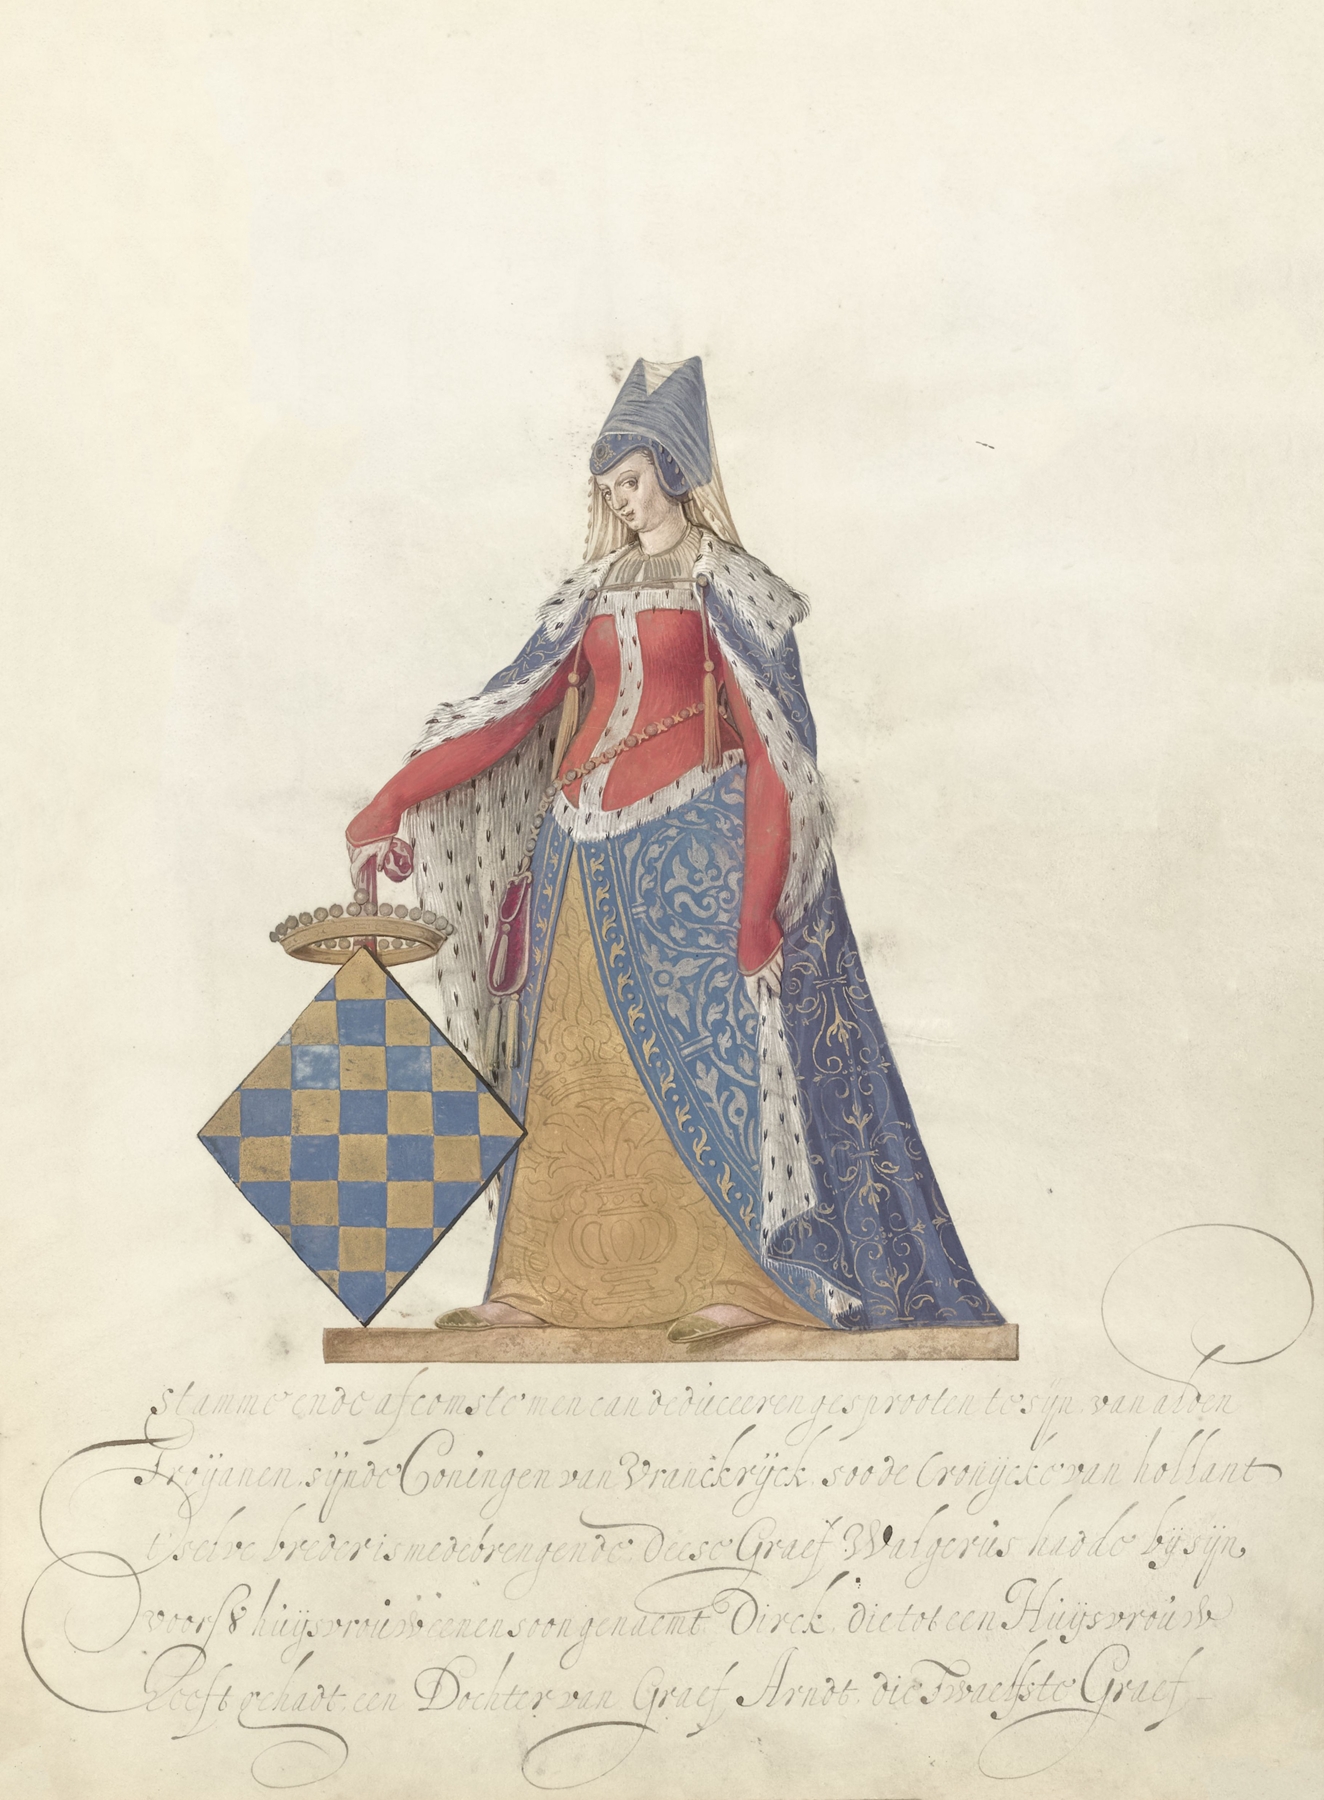 stamme ende afcomste men can deduceeren gesprooten te sijn van alden
Troijanen, sijnde Coningen van Vranckrijck, soo de Cronijcke van hollant
t'selve breder is medebrengende. Deese Graef Walgerus hadde bij sijn
voors8 huijsvrouw eenen soon genaemt Dirck, die tot een Huijsvrouw
heeft gehadt een Dochter van Graef Arndt, die Twaelfste Graef